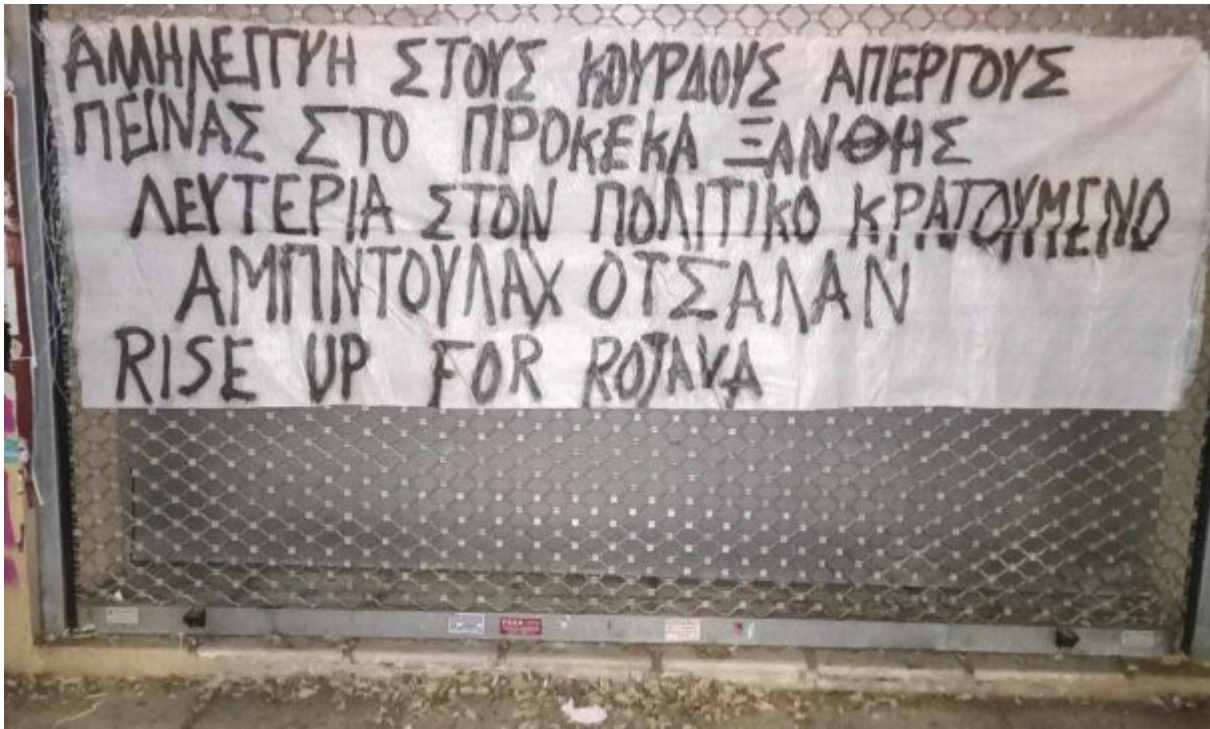 ΑΛΛΗΛΕΓΓΥΗ ΣΤΟΥΣ ΚΟΥΡΔΟΥΣ ΑΠΕΡΓΟΥΣ
ΠΕΙΝΑΣ ΣΤΟ ΠΡΟΚΕΚΑ ΞΑΝΘΗΣ
ΛΕΥΤΕΡΙΑ ΣΤΟΝ ΠΟΛΙΤΙΚΟ ΚΡΑΤΟΥΜΕΝΟ
ΑΜΠΝΤΟΥΛΑΧ ΟΤΣΑΛΑΝ
RISE UP FOR ROJAVA